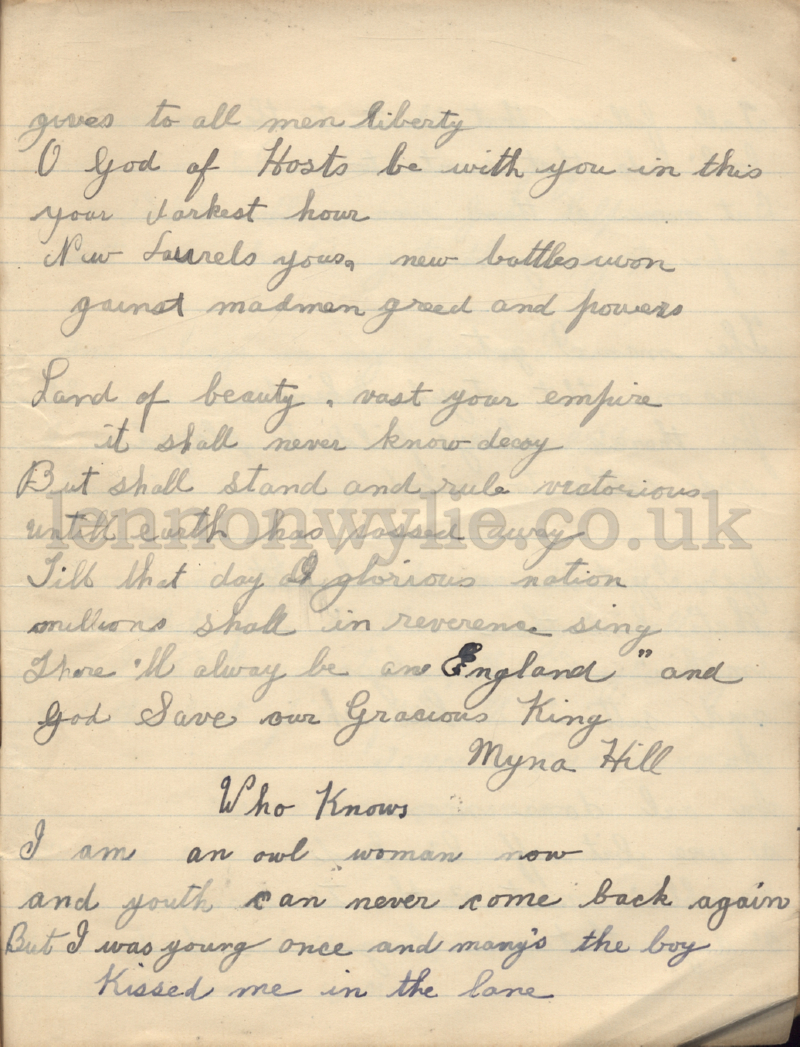 gives to all men liberty
O God of Hosts be with you in this
your darkest hour
New Laurels yours, new battles won
gainst madmen greed and powers
Land of beauty, vast your empire
it shall never know decay
But shall stand and rule victorious
untill earth has passed away
Till that day O glorious nation
millions shall in reverence sing
There'll alway be an England" and
God Save our Gracious King
Myna Hill
Who Knows
I am an owl woman now
and youth can never come back again
But I was young once and many's the boy
Kissed me in the lane
lennonwylie.co.uk